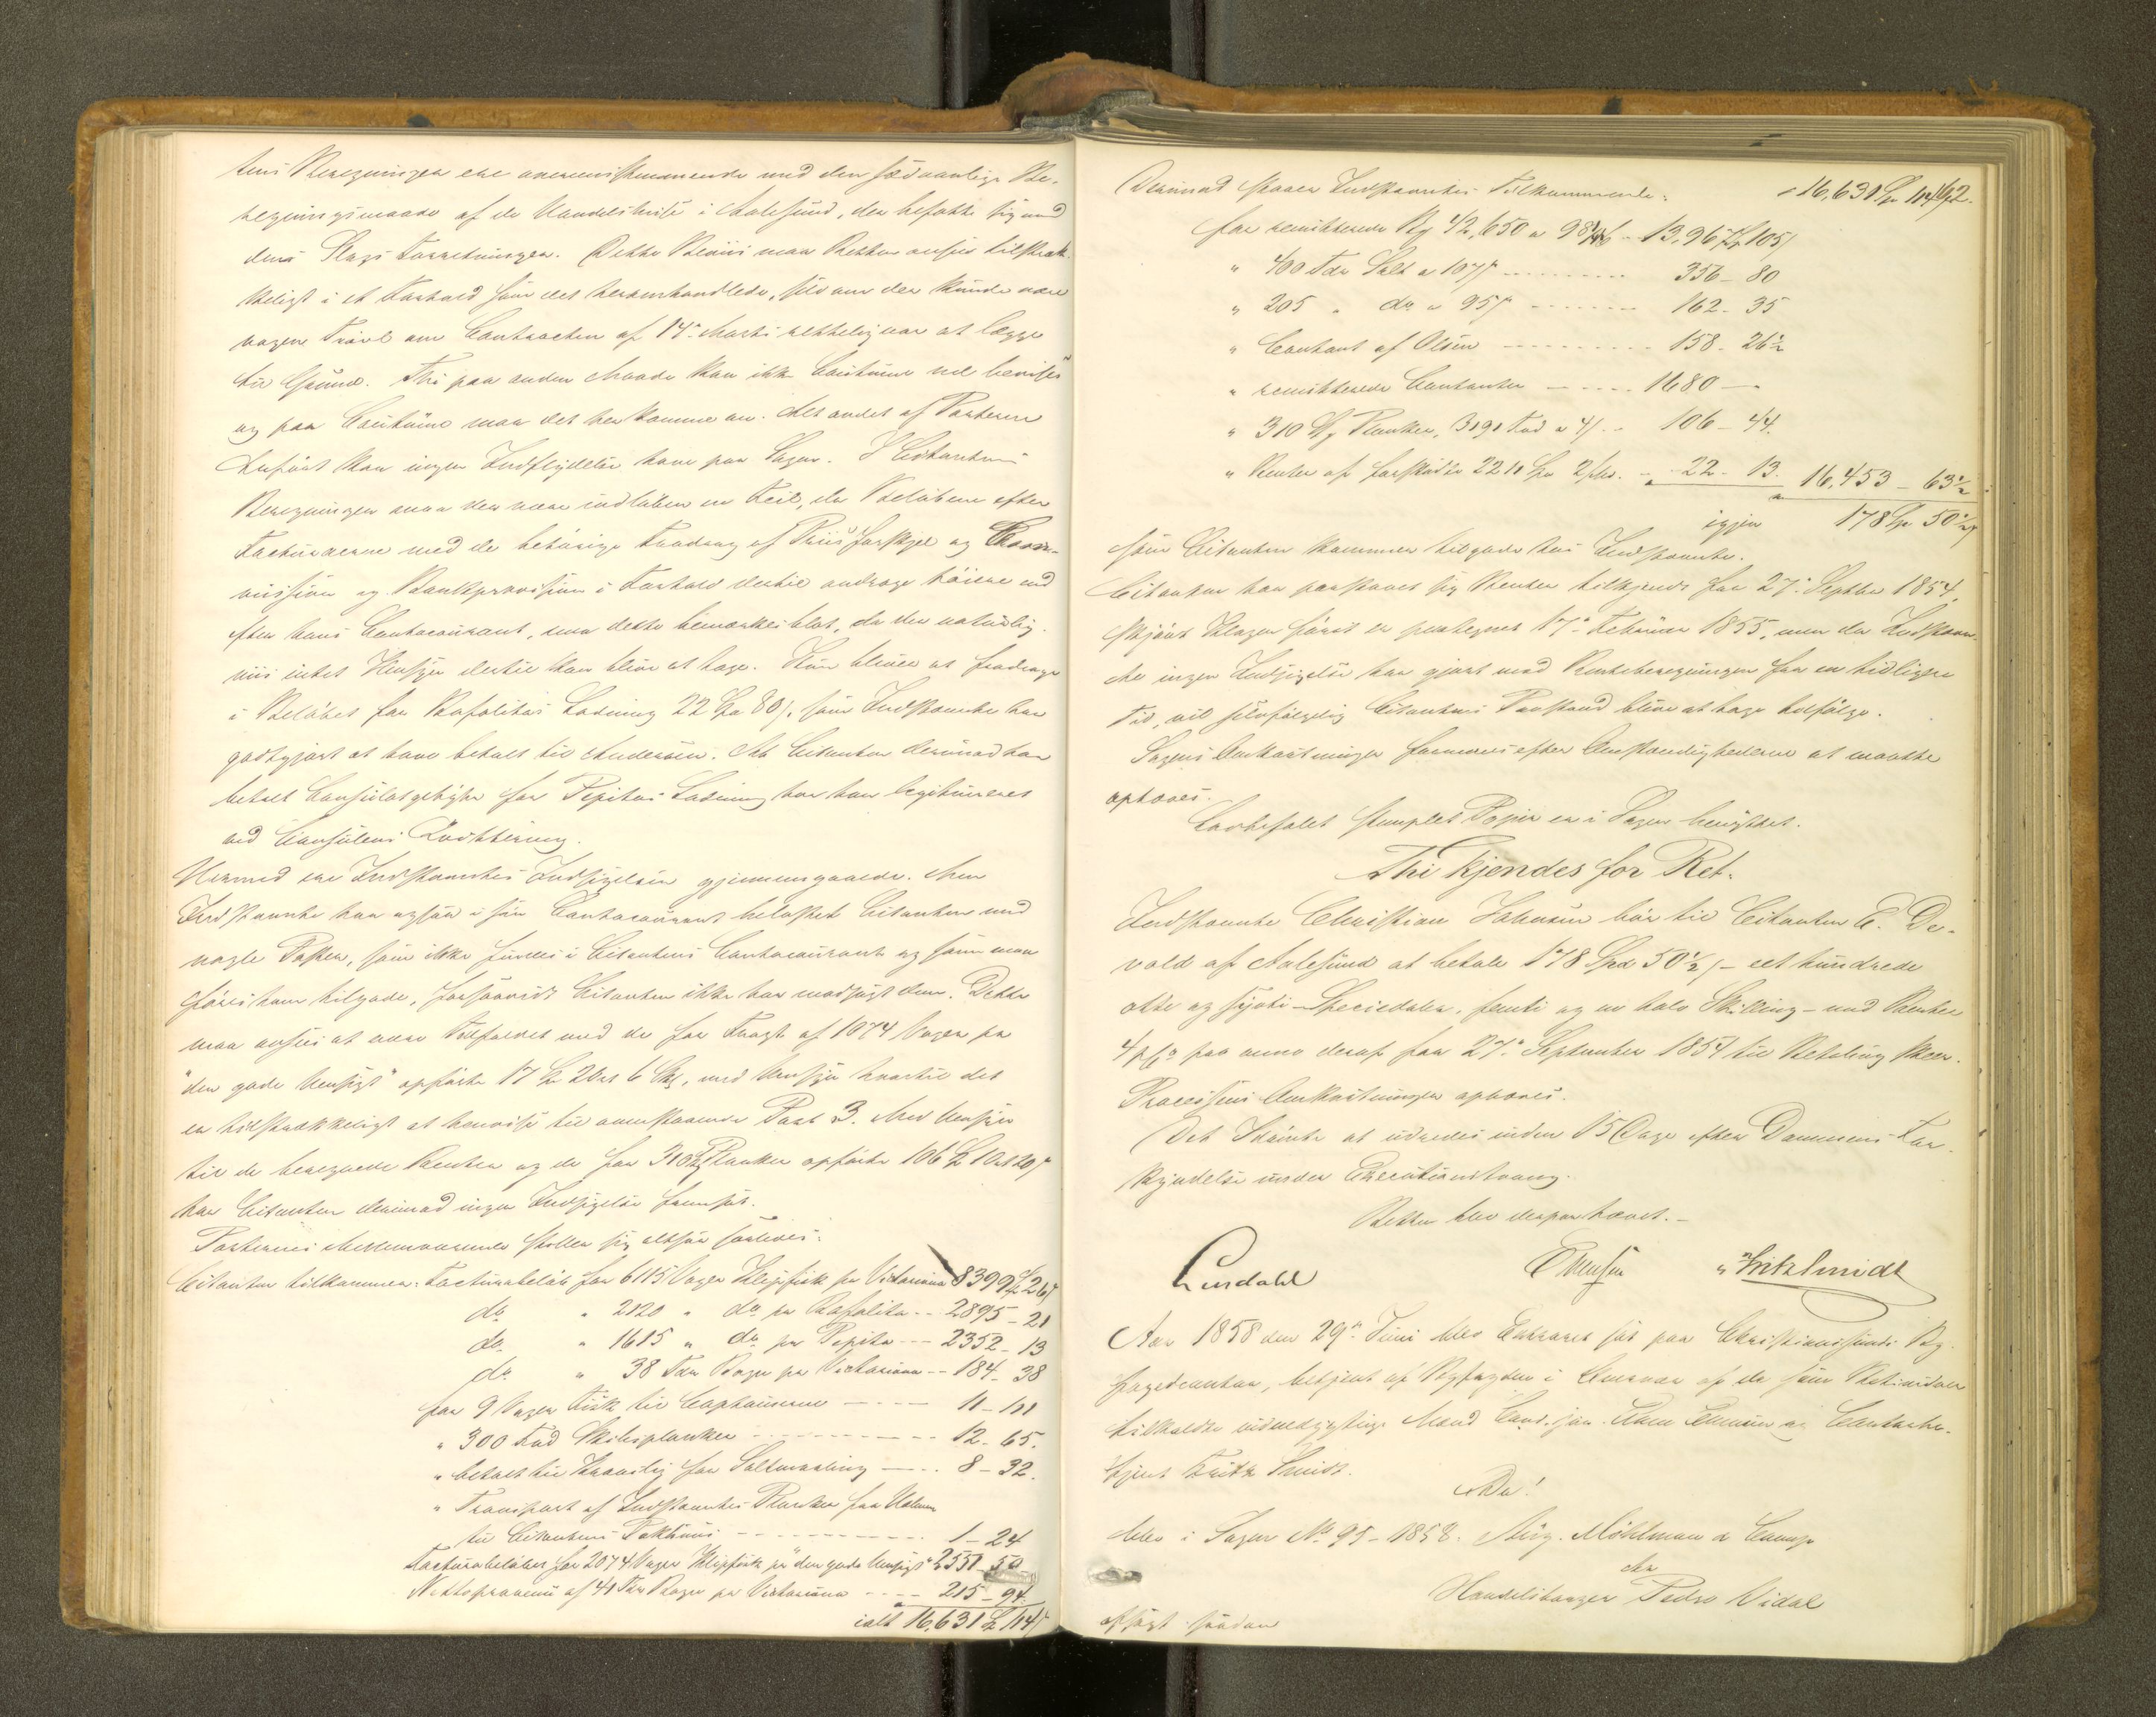 tens Beregninger ere overensstemmende med den sædvanlige Be-
regningsmaade af de Handelshuse i Aalesund, der befatte sig med
dens Slags Forretninger. Dette Beviis maa Retten ansee tilstræk-
keligt i et Forhold som det heromhandlede, selv om der kunde være
nogen Tvivl om Contracten af 14de Marts rettelig var at lægge
til Grund. Thi paa anden Maade kan ikke Coutume vel bevises
og paa Coutume maa det her komme an. Alt andet af Parterne
Anført kan ingen Indflydelse have paa Sagen. I Citantens
Beregninger maa der være indløben en Feil, da Beløbene efter
Facturaerne med de behørige Fradrag af Priis forskjel og Com-
mission og Bankprovision i Forhold dertil andrage høiere end
efter hans Contocourant, men dette bemærkes blot, da der naturlig-
viis intet Hensyn dertil kan blive at tage. Kun bliver at fradrage
i Beløbet for Rafolitas Ladning 22 Spd 80 s. som Indstævnte har
godtgjort at have betalt til Andersen. At Citanten derimod har
betalt Consulatgebyhr for Pepitas Ladning har han legitimeret
ved Consulens Qvittering.
Hermed ere Indstævntes Indsigelser gjennemgaaede. Men
Indstævnte har ogsaa i sin Contocourant belastet Citanten med
nogle Poster, som ikke findes i Citantens Contocourant og som maa
føres ham tilgode, forsaavidt Citanten ikke har modsagt dem. Dette
maa ansees at være Tilfældet med de for Fragt af 1074 Voger pr
"den gode Hensigt" opførte 17 Spd 2 Ort 6 Sk, med Hensyn hvortil det
er tilstrækkeligt at henvise til ovenstaaende Post 3. Med Hensyn
til de beregnede Renter og de for 310 Planker opførte 106 Spd 1 Ort 20 s
har Citanten derimod ingen Indsigelse fremsat.
Parternes Mellemværende stiller sig altsaa saaledes:
Citanten tilkommer: Facturabeløb for 6115 Voger Klipfisk pr Victoriana 8399 Spd 26 s
do. " 2120 " do. pr Rafolita -- 2895 - 21
do. " 1615 " do. pr Pepita --- 2352 - 13
do. " 38 Tdr Rogn pr Victoriana -- 184 - 38
for 9 Voger Fisk til Caphauserne ---- 11 - 111
" 300 Fod Skibsplanker ---------- 12 - 65.
" betalt til Kravdig for Saltmaaling ---- 8 - 32.
" Transport af Indstævntes Planker fra Volum
til Citantens Pakhuus ---------- 1 - 24
Facturabeløbet for 2074 Voger Klipfisk pr "den gode Hensigt" 2551 - 50
Nettoprovenu af 41 Tdr Rogn pr Victoriana ---- 215 - 94.
ialt 16,631 Spd 114 s
Derimod skaaer Indstævntes Tilkommende: 16,631 Spd 114 s
for remitterede Bg 42,650 a -- 13,967 Spd 105 s
" 400 Tdr Salt a 107 s -------- 356 - 80
" 205 " do a 95 s -------- 162 - 35
" Contant af Olsen -------- 158 - 26½
" remitterede Contanter ----- 1680 -
" 310 Planker, 3191 Fod a 4 s -- 106 - 44.
" Renter af forskudte 2211 Spd 2 pCt. -- 22 - 13. 16,453 - 63½
igjen 178 Spd 50½ s
som Citanten kommer tilgode hos Indstævnte.
Citanten har paastaaet sig Renter tilkjendt fra 27de Septbr 1854,
skjønt Klagen først er paategnet 17de Februar 1855, men da Indstævn-
te ingen Indsigelse har gjort mod Renteberegningen fra en tidligere
Tid, vil selvfølgelig Citantens Paastand blive at tage tilfølge.
Sagens Omkostninger formenes efter Omstændighederne at maatte
ophæves.
Lovbefalet stemplet Papir er i Sagen benyttet.
Thi kjendes for Ret.
Indstævnte Christian Johnsen bør til Citanten E. De-
vold af Aalesund at betale 178 Spd 50½ s - eet hundrede
otte og sytti Speciedaler, femti og en halv Skilling - med Renter
4 pCt pro anno deraf fra 27de September 1854 til Betaling skeer.
Processens Omkostninger ophæves.
Det Idømte at udredes inden 15 Dage efter Dommens For-
kyndelse under Executionstvang.
Retten blev derpaa hævet.
Lindahl Fritz Smidt
Aar 1858 den 29de Juni blev Extraret sat paa Christianssunds By-
fogedcontor, betjent af Byfogden i Overvær af de som Retsvidner
tilkaldte vidnedygtige Mænd Cand. jur. og Contorbe-
tjent Fritz Smidt.
Da!
blev i Sagen No 95 - 1858. Aug. Möhlman & Comp
ctr
Handelsborger Pedro Vidal
afsagt saadan